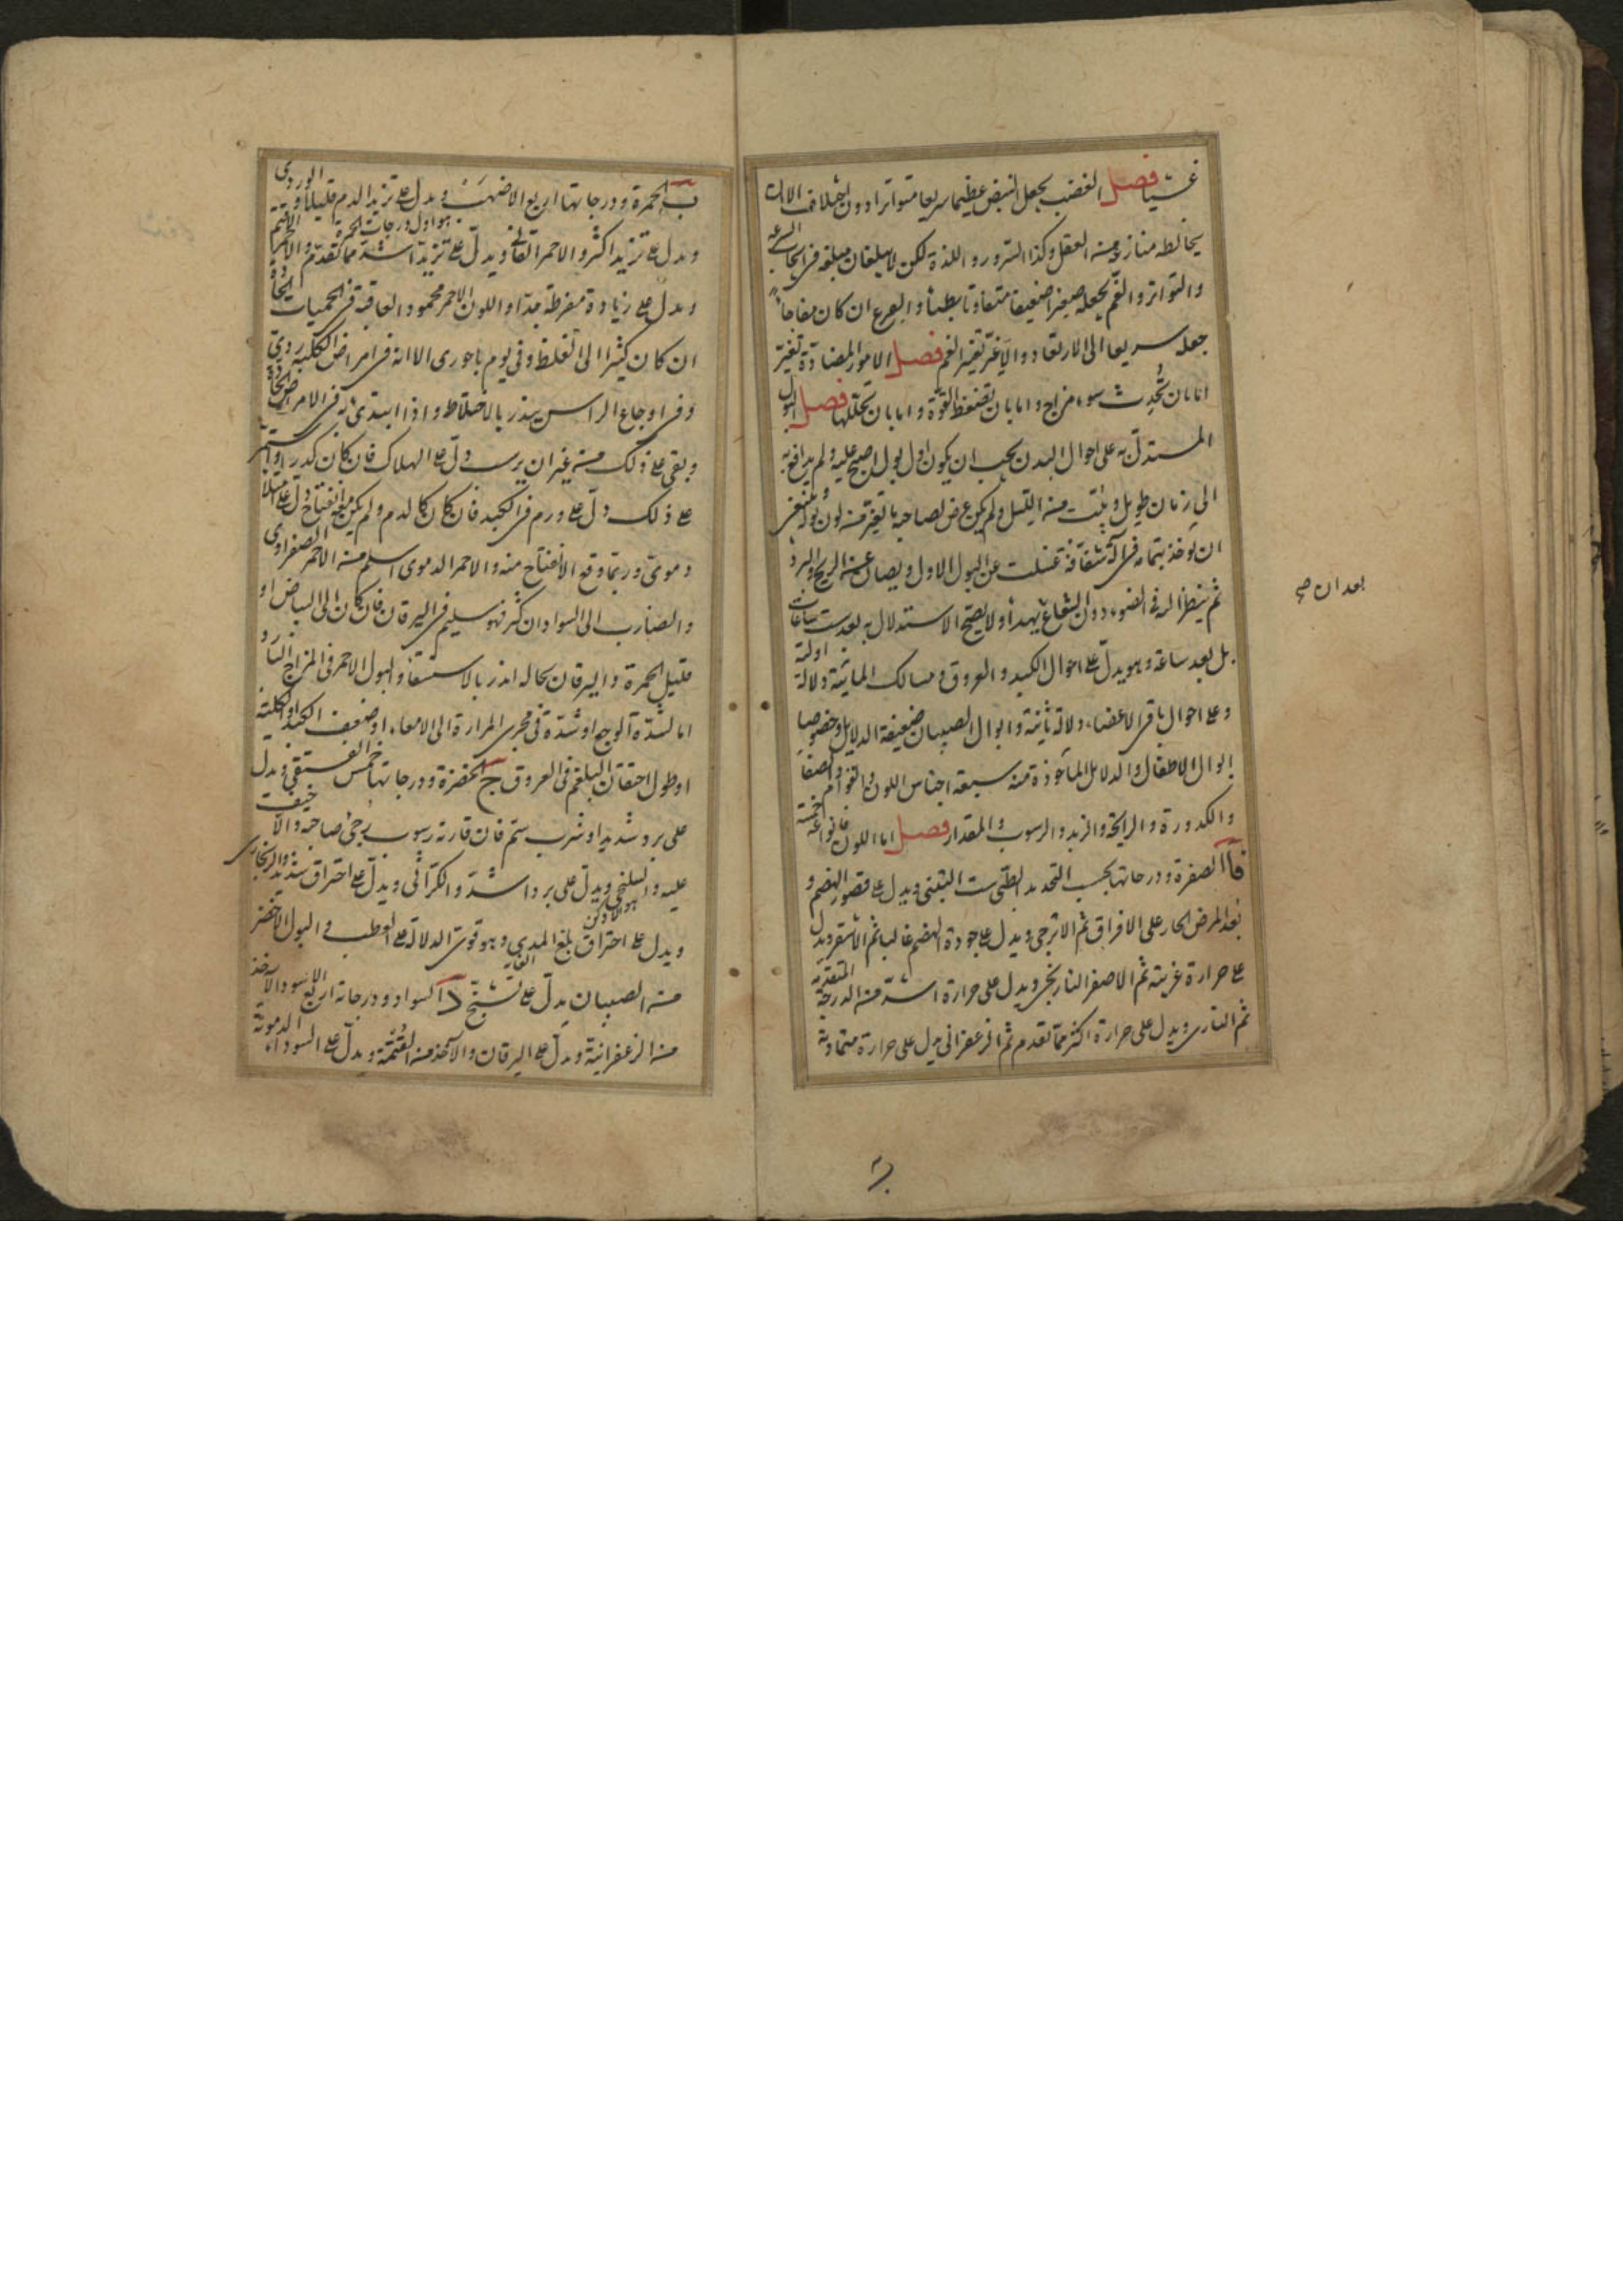 غشيا فصل الغضب يجعل النبض عظيما سريعا متواترا دون اختلاف الا ان
يخالطه منازعة من العقل وكذا السرور واللذة لكن لا يبلغان مبلغه في السرعة
والتواتر والغم يجعله صغيرا ضعيفا متفاوتا بطيئا والفزع ان كان مفاجأ
جعله سريعا الى الارتعاد والا غير تغير الغم فصل الامور المضادة تغير
اما بان تحدث سوء مزاج واما بان تضغط القوة واما بان تحللها فصل البول
المستدل به على احوال البدن يجب ان يكون اول بول اصبح عليه ولم يدافع به
الى زمان طويل ويثبت من الليل ولم يكن عرض لصاحبه ما يغير من لون بوله
ان يوخذ بتمامه في آلة شفافة غسلت عن البول الاول ويصان عن الريح والبرد
بعد ان صح
ثم ينظر اليه في الضوء دون الشعاع يهدأ ولا يصح الاستدلال به بعد ست ساعات
بل بعد ساعة وهو يدل على احوال الكبد والعروق ومسالك المائية دلالة اولية
وعلى احوال باقي الاعضاء دلالة ثانية وابوال الصبيان ضعيفة الدلايل وخصوصا
ابوال الاطفال والدلايل المأخوذة منه سبعة اجناس اللون والقوام والصفا
والكدورة والرايحة والزبد والرسوب والمقدار فصل اما اللون فانواعه خمسة
فآ الصفرة ودرجاتها بحسب التحديد الطبي ست التبني ويدل على قصور الهضم و
بعد المرض الحار على الافراق ثم الاترجي ويدل على جودة الهضم غالبا ثم الاشقر ويدل
على حرارة غريبة ثم الاصفر النارنجي ويدل على حرارة اشد من الدرجة المتقدمة
ثم الناري ويدل على حرارة اكثر مما تقدم ثم الزعفراني يدل على حرارة متمادية
ب الحمرة ودرجاتها اربع الاصهب ويدل على تزيد الدم قليلا والوردي
هو اول درجات الحمرة
ويدل على تزيد اكثر والاحمر القاني ويدل على تزيد اشد مما تقدم والاحمر الاقتم
ويدل على زيادة مفرطة جدا واللون الاحمر محمود العاقبة في الحميات الحادة
ان كان كثيرا الى الغلظ وفي يوم باحوري الا انه في امراض الكلية ردي
وفي اوجاع الراس ينذر بالاختلاط واذا ابتدئ به في الامراض الحادة
وبقي على ذلك من غير ان يرسب دل على الهلاك فان كان كدرا واستمر
على ذلك دل على ورم في الكبد فان كان كالدم ولم يكن معه انفتاح دل على امتلاء
دموي وربما وقع الانفتاح منه والاحمر الدموي اسلم من الاحمر الصفراوي
والضارب الى السواد ان كثر فهو سليم في اليرقان فان كان الى البياض او
قليل الحمرة واليرقان بحاله انذر بالاستسقاء والبول الاحمر في المزاج البارد
اما لشدة الوجع او شدة في مجرى المرارة الى الامعاء او ضعف الكبد او الكلية
او طول احتقان البلغم في العروق ج الخضرة ودرجاتها خمس الفستقي ويدل
على برد شديد او شرب سم فان قارنه رسوب رجي صاحبه والا خيف
عليه والنيلنجي ويدل على برد اشد والكراثي ويدل على احتراق شديد والزنجاري
هو الادكن
ويدل على احتراق بلغ المدى وهو قوي الدلالة على العطب والبول الاخضر
من الصبيان يدل على تشنج د السواد ودرجاته اربع الاسود الآخذ
من الزعفرانية ويدل على اليرقان والآخذ من القتمة ويدل على السوداء الدموية